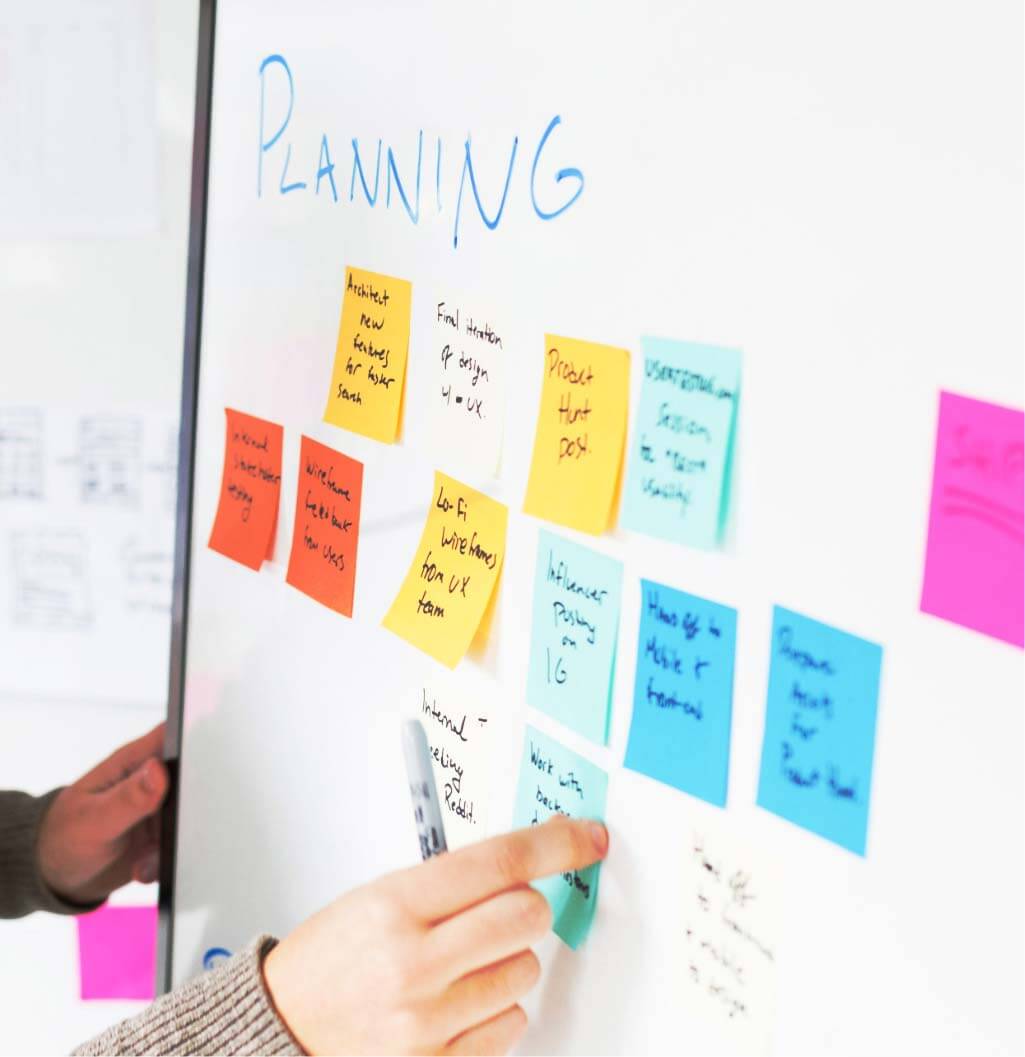 PLANNING
Architect
new
features
for faster
search
Final iteration
of design
UX.
Product
Hunt
post.
Session
to
usability
Internal
stakeholder
testing
Wireframe
feedback
from users
Lo-Fi
wireframes
from UX
team
Influencer
Posting
on
IG
Hand off to
Mobile +
front-end
Prepare
Assets
for
Product Hunt.
Internal
Reddit.
Work with
Hand off
to
mobile
to design